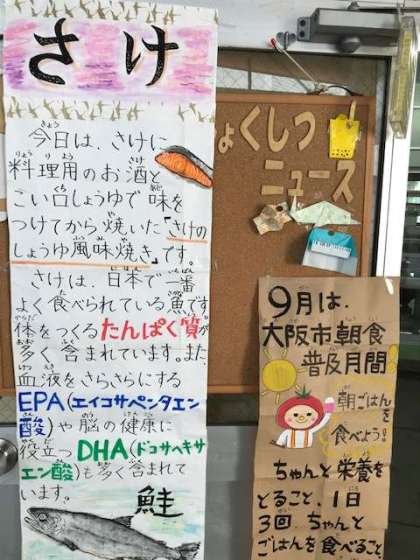 さけ
今日は、さけに
料理用のお酒と
こい口しょうゆで味を
つけてから焼いた「さけの
しょうゆ風味焼き」です。
さけは、日本で一番
よく食べられている魚です
体をつくるたんぱく質が
多く含まれています。また、
血液をさらさらにする
EPA(エイコサペンタエン
酸)や脳の健康に
役立つDHA(ドコサヘキサ
エン酸)も多く含まれて
います。
鮭
ょくしつ
ニュース
9月は、
大阪市朝食
普及月間
朝ごはんを
食べよう!
ちゃんと栄養を
とること、1日
3回、ちゃんと
ごはんを食べること